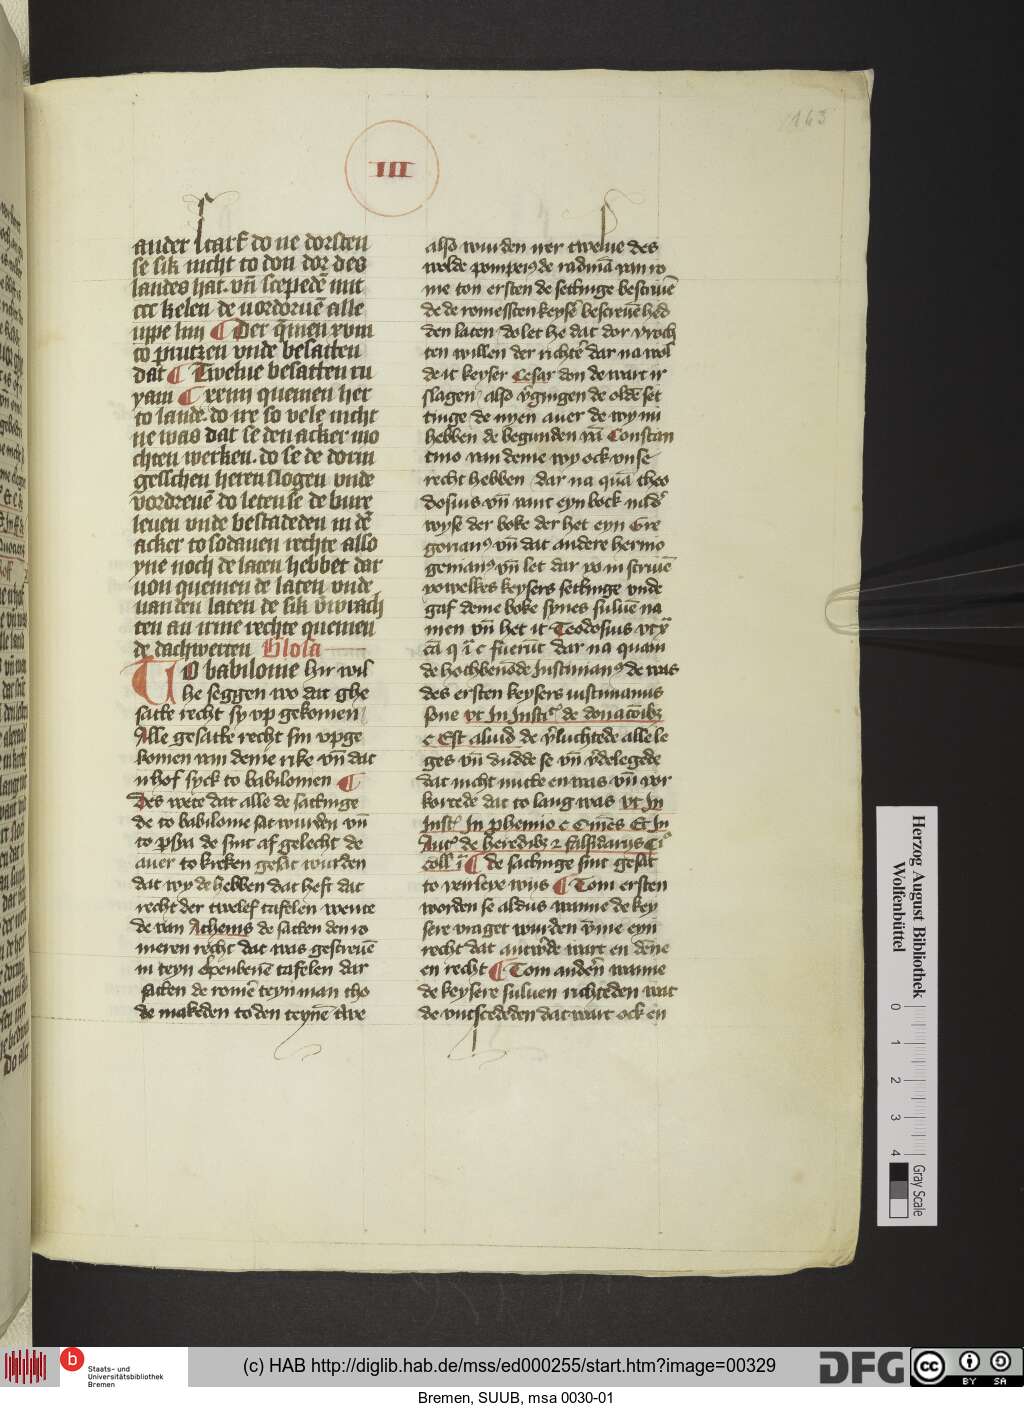 163
III
ander starf do ne dorsten
se sik nicht to don dor des
landes hat. vn̄ scepedē mit
cer kelen de uordoruē alle
uppe hin ¶ Der q̄men xvm
to prutzen vnde besatten
dat ¶ Twelue besatten ru
yam ¶ xxiiii quemen her
to lande. do ire so vele nicht
ne was dat se den acker mo
chten werken. do se de dorin
gesschen heren slogen vnde
vordreuē do leten se de bure
leuen vnde bestadeden in dē
acker to sodanen rechte also
yne noch de laten hebbet dar
uon quemen de laten vnde
uan den laten de sik v̄wrach
ten an irme rechte quemen
de dachwerten Glosa
TO babilonie hir wil
he seggen wo dat ghe
satte recht sy vp gekomen
Alle gesatte recht sin vpge
komen van deme rike vn̄ dat
irhof syck to babilonien ¶
Des wete dat alle de sattinge
de to babilonie sat wurden vn̄
to psya de sint af gelecht de
auer to kreken gesat wurden
dat wy de hebben dat heft dat
recht der twelef tafelen wente
de van Athenis de satten den ro
meren recht dat was gescreuē
in teyn elpenbenē tafelen dar
satten de romē teyn man tho
de makeden to den teynē twe
also wurden irer twelue des
wolde pompei9 de radmā van ro
me ton ersten de settinge bescriuē
de de romessten keysē bescreuē hed
den laten do let he dat dor vroch
ten willen der richtē dar na wol
de it keyser Cesar don de wart ir
slagen also v̄gingen de oldē set
tinge de nyen auer de wy nu
hebben de begunden vā Constan
tino van deme wy ock vnse
recht hebben dar na quā theo
dosius vn̄ vant eyn bock nad'
wyse der boke der het eyn Gre
gorian9 vn̄ dat andere hermo
genian9 vn̄ let dar von scriuē
vowelkes keysers settinge vnde
gaf deme boke synes suluē na
men vn̄ het it Teodosius vt
c̄a q ī c fuerūt dar na quam
de hochbenōde Justinian9 de was
des ersten keysers iustinianus
sone vt In Inst' de donacōib3
c Est aliud de v̄luchtede alle le
ges vn̄ dudde se vn̄ v̄delegede
dat nicht nutte en was vn̄ vor
kortede dat to lang was vt In
Inst' In phemio c Cmēs Et In
Aut' de heredib3 2 falsidariis C i°
coll ī ¶ de sattinge sint gesat
to venleye wiis ¶ Tom ersten
worden se aldus wanne de key
sere vraget wurden v̄me eyn
recht dat antw̄de wart en dēne
en recht ¶ Tom andern̄ wanne
de keysere suluen richteden wat
de vntscededen dat wart ock en
Herzog August Bibliothek
Wolfenbüttel
0 1 2 3 4
Gray Scale
b Staats- und
Universitätsbibliothek
Bremen
(c) HAB http://diglib.hab.de/mss/ed000255/start.htm?image=00329
DFG
cc BY SA
Bremen, SUUB, msa 0030-01